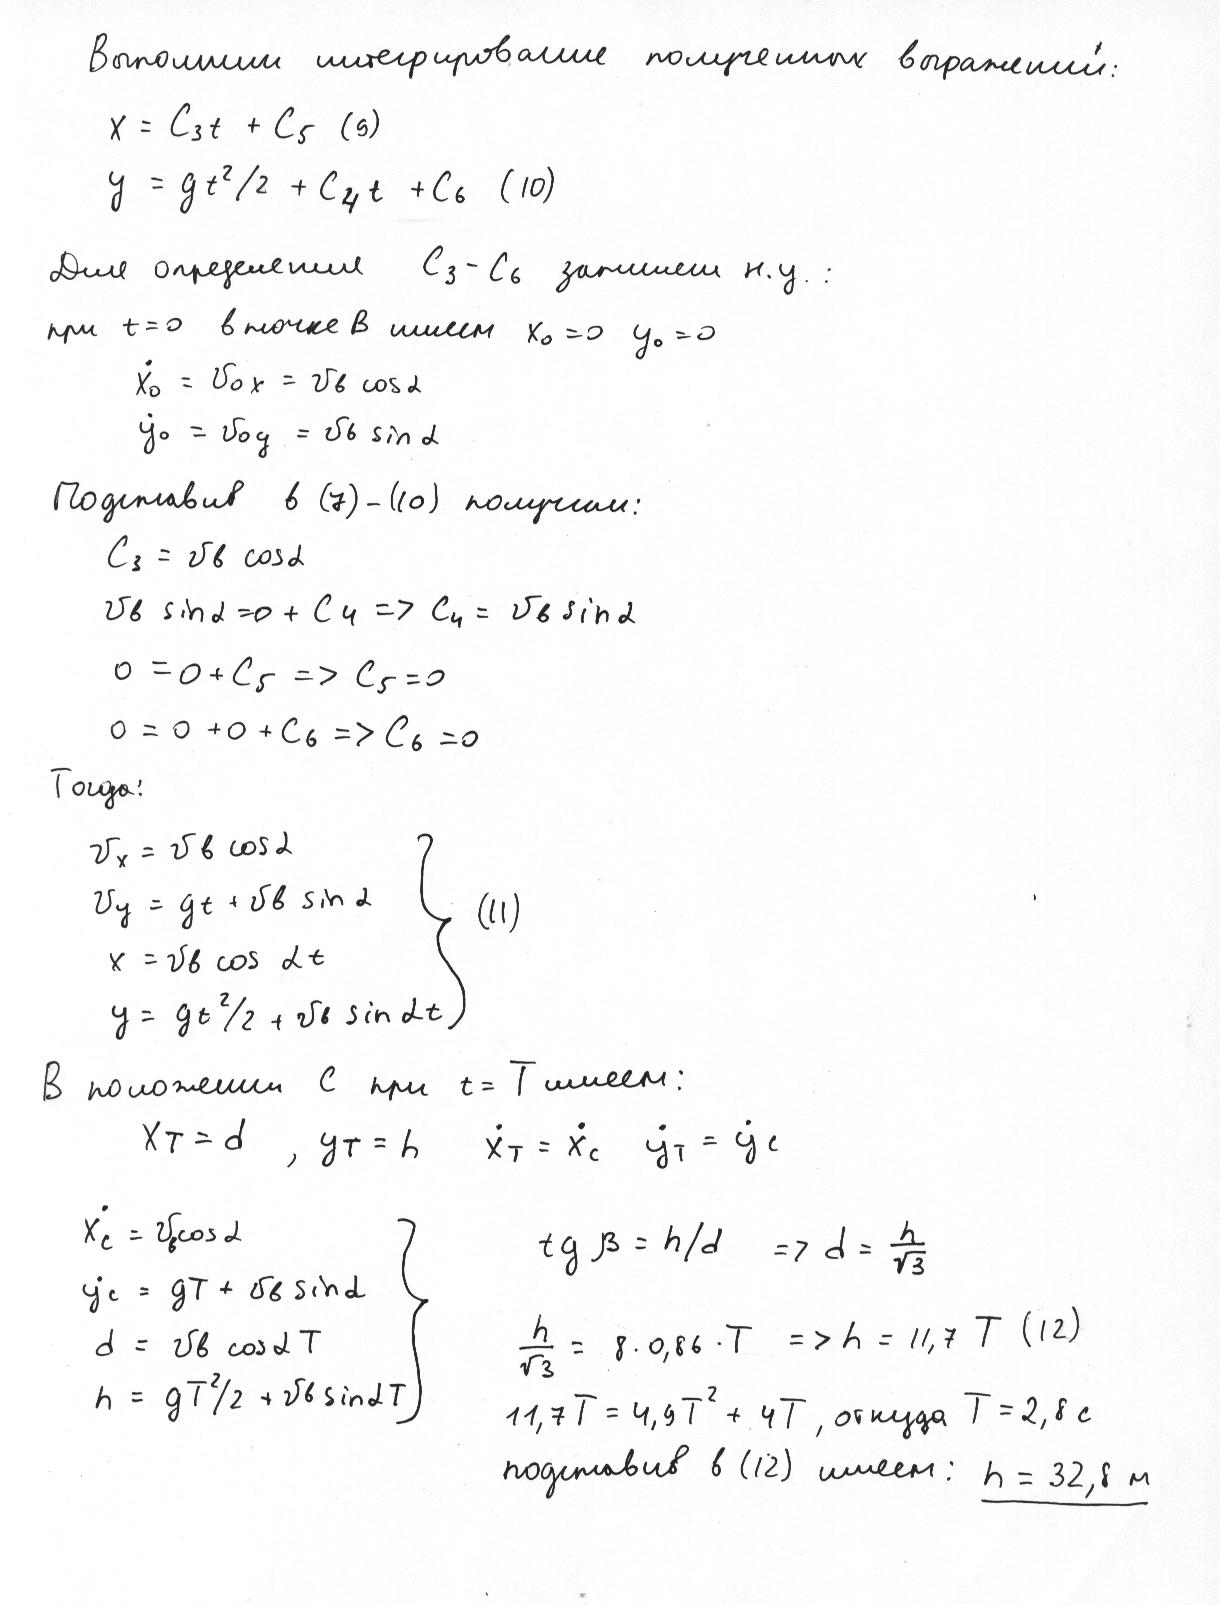 Выполним интегрирование полученных выражений:
x = C₃t + C₅ (9)
y = gt²/2 + C₄t + C₆ (10)
Для определения C₃ - C₆ запишем н.у.:
при t=0 в точке B имеем x₀=0 y₀=0
ẋ₀ = v₀x = vв cosα
ẏ₀ = v₀y = vв sinα
Подставив в (7)-(10) получим:
C₃ = vв cosα
vв sinα=0 + C₄ => C₄ = vв sinα
0 = 0 + C₅ => C₅ = 0
0 = 0 + 0 + C₆ => C₆ = 0
Тогда:
vx = vв cosα
vy = gt + vв sinα
(11)
x = vв cos αt
y = gt²/2 + vв sinαt
В положении C при t = T имеем:
xT = d , yT = h ẋT = ẋc ẏT = ẏc
ẋc = vв cosα
ẏc = gT + vв sinα
d = vв cosαT
h = gT²/2 + vв sinαT
tg β = h/d => d = h/√3
h/√3 = 8·0,86·T => h = 11,7 T (12)
11,7T = 4,9T² + 4T, откуда T = 2,8 с
подставив в (12) имеем: h = 32,8 м